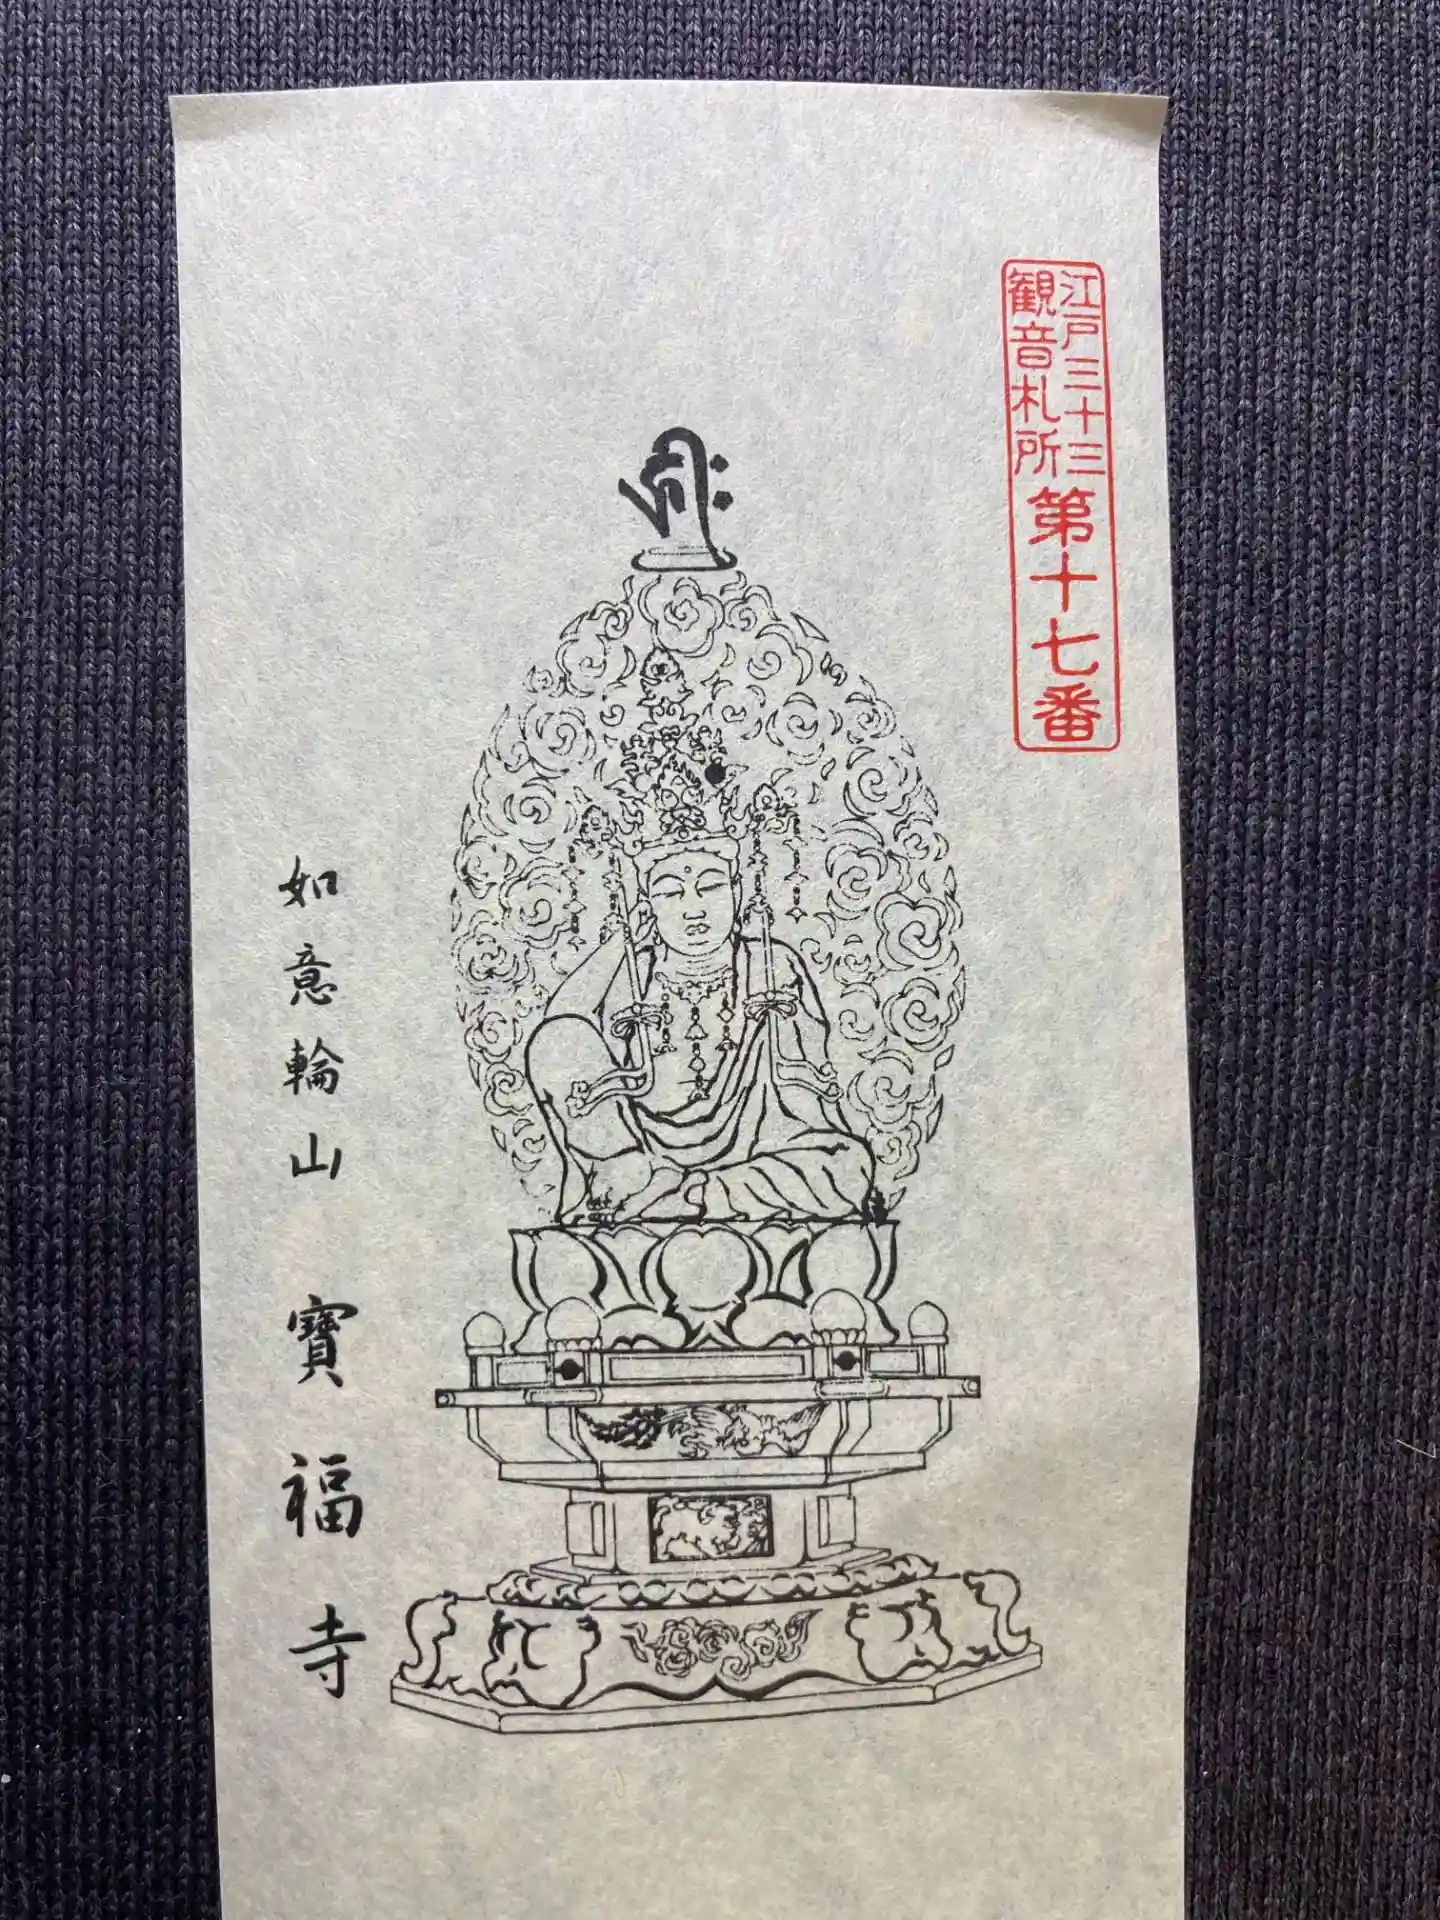 江戸三十三
観音札所
第十七番
𑖮𑖿𑖨𑖱𑖾
如意輪山 寶福寺